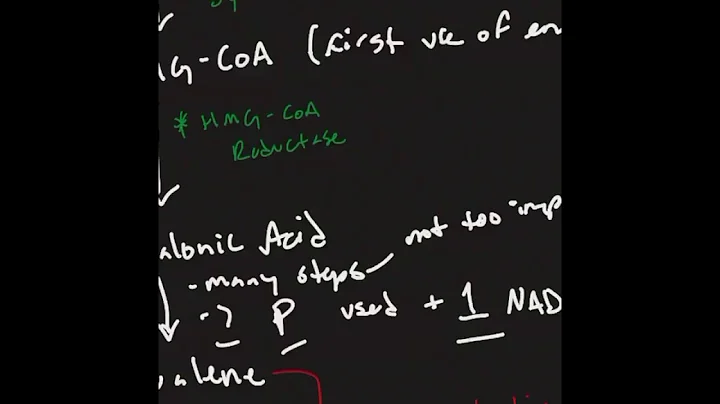 G-CoA (first use of en
* HMG-CoA
Reductase
alonic Acid
- many steps
not too imp
- ? P used + 1 NAD
alene